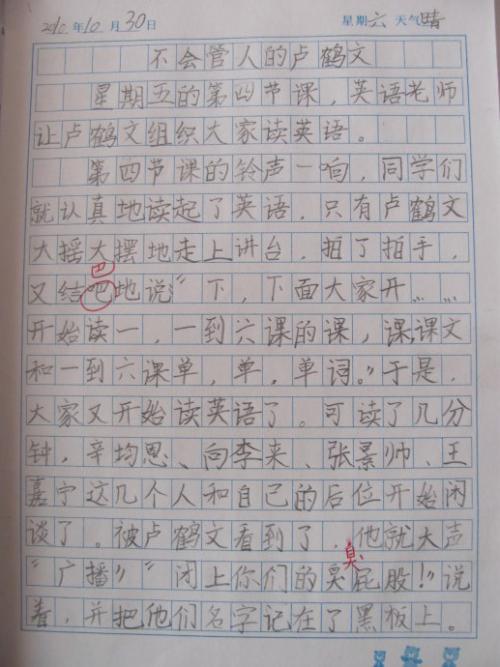 2010年10月30日 星期六 天气晴
不会管人的卢鹤文
星期五的第四节课，英语老师
让卢鹤文组织大家读英语。
第四节课的铃声一响，同学们
就认真地读起了英语，只有卢鹤文
大摇大摆地走上讲台，拍了拍手，
巴
又结吧地说“下，下面大家开……
开始读一，一到六课的课，课课文
和一到六课单，单，单词。”于是，
大家又开始读英语了。可读了几分
钟，辛均思、向李来、张景帅、王
嘉宁这几个人和自己的后位开始闲
谈了。被卢鹤文看到了，他就大声
臭
“广播”“闭上你们的臭屁股！”说
着，并把他们名字记在了黑板上。